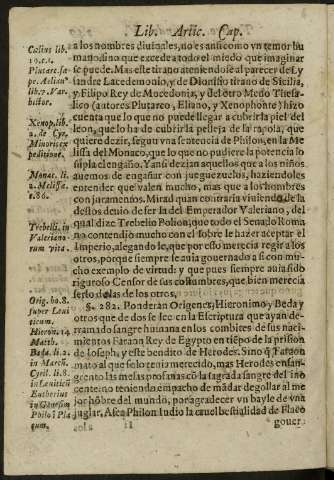 Lib. Artic. Cap.
Celius lib.
10.c.1.
Plutarc. sa-
pe. Aelian°
lib. 7. Var.
histor.
Xenop. lib.
2. de Cyr.
Minoris ex
peditione.
Monac. li.
2. Melissæ.
c. 86.
Trebell. in
Valeriano-
rum vita.
Orig. ho. 8.
super Leui
ticum.
Hieron. 14
Matth.
Beda. li. 2.
in Marcū.
Cyril. li. 8.
in Leuiticū
Eutherius
in Genesim
Philo i Fla
cum.
a los nombres diuinales, no es ansi como vn temor hu
mano, sino que excede a todo el miedo que imaginar
se puede. Mas este tirano ateniendose al parecer de Ly
sandre Lacedemonio, y de Dionisio tirano de Sicilia,
y Filipo Rey de Macedonia, y del otro Meno Thesa-
lico (autores Plutarco, Eliano, y Xenophonte) hizo
cuenta que lo que no puede llegar a cubrir la piel del
leon, que lo ha de cubrir la pelleja de la raposa, que
quiere dezir, segun vna sentencia de Philon, en la Me
lissa del Monaco, que lo que no pudiere la potencia lo
supla el engaño. Y ansi dezian aquellos que a los niños
auemos de engañar con jueguezuelos, haziendoles
entender que valen mucho, mas que a los hombres
con juramentos. Mirad quan contraria viuienda de la
destos deuio de ser la del Emperador Valeriano, del
qual dize Trebelio Polion, que todo el Senado Roma
no contendio mucho con el sobre le hazer aceptar el
Imperio, alegando le, que por esso merecia regir a los
otros, porque siempre se auia gouernado a si con mu-
cho exemplo de virtud: y que pues siempre auia sido
riguroso Censor de sus costumbres, que bien merecia
serlo de las de los otros.
§. 282. Ponderan Origenez, Hieronimo y Beda y
otros que de dos se lee en la Escriptura que ayan de-
rramado sangre humana en los combites de sus naci-
mientos Faraon Rey de Egypto en tiēpo de la prision
de Ioseph, y este bendito de Herodes. Sino q̄ Faraon
mato al que solo tenia merecido, mas Herodes ensan-
grento las mesas profanas cō la sagrada sangre del ino
cente no teniendo empacho de mādar degollar al me
jor hōbre del mundo, por agradecer vn bayle de vna
juglar. Afea Philon Iudio la cruel bestialidad de Flaco
gouer-